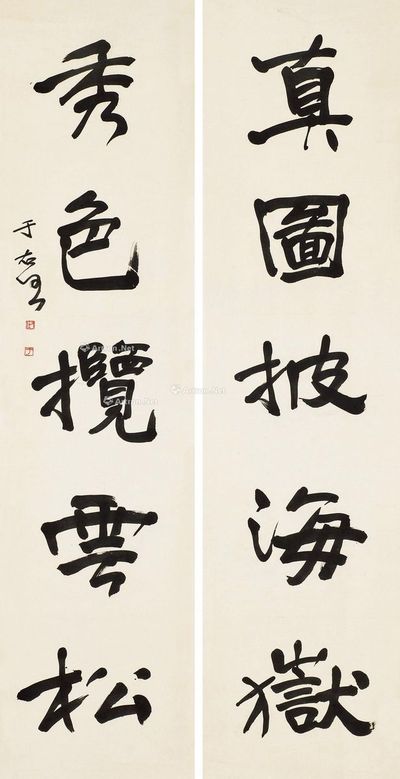 真圖披海嶽
秀色攬雲松
于右任
Artron.Net
Artron.Net
Artron.Net